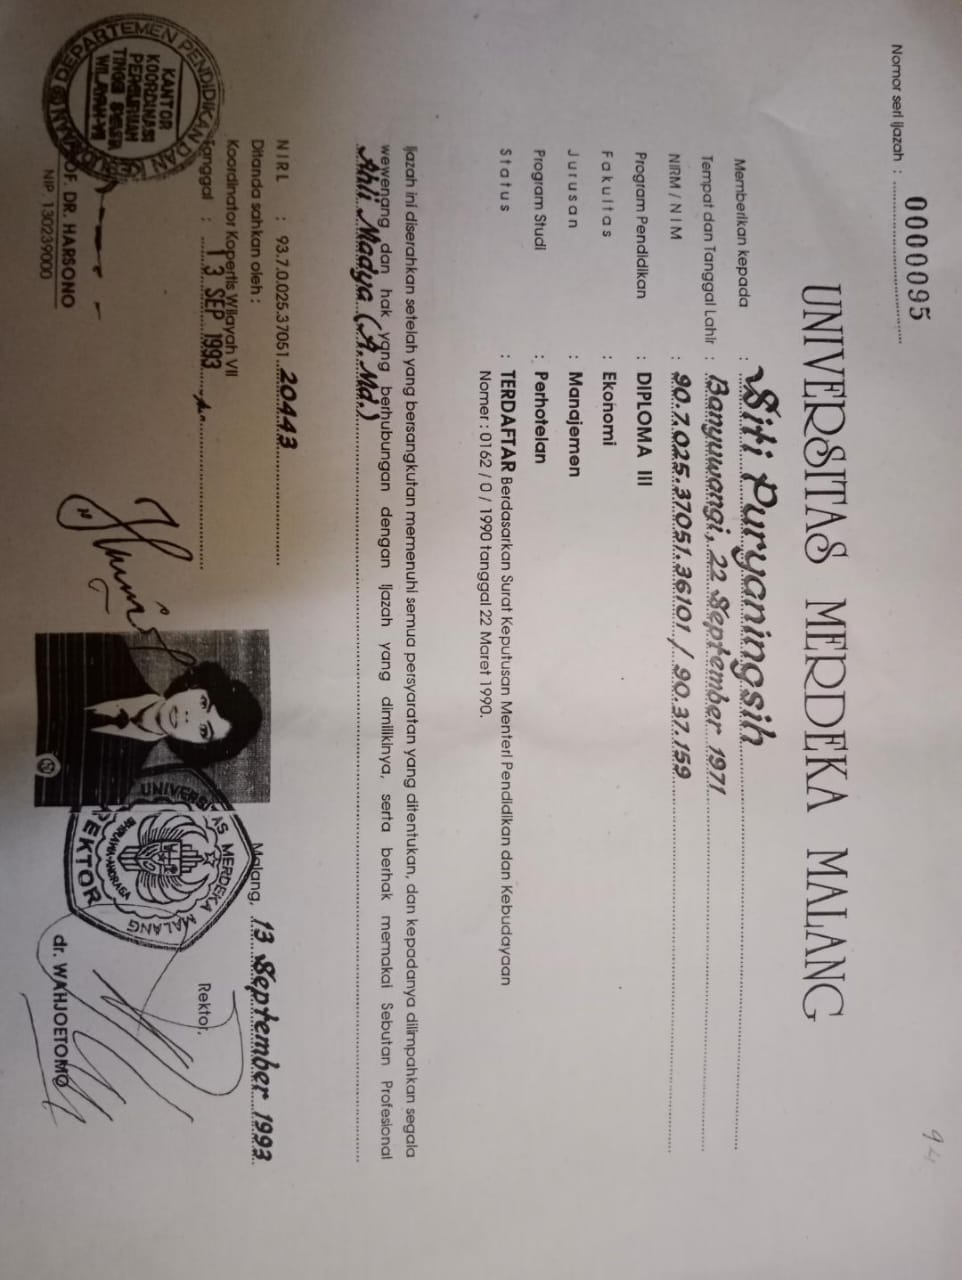 94
Nomor seri Ijazah : 0000095
UNIVERSITAS MERDEKA MALANG
Memberikan kepada : Siti Puryaningsih
Tempat dan Tanggal Lahir : Banyuwangi, 22 September 1971
NIRM / NIM : 90.7.025.37051.36101 / 90.37.159
Program Pendidikan : DIPLOMA III
Fakultas : Ekonomi
Jurusan : Manajemen
Program Studi : Perhotelan
Status : TERDAFTAR Berdasarkan Surat Keputusan Menteri Pendidikan dan Kebudayaan
Nomer : 0162 / 0 / 1990 tanggal 22 Maret 1990.
Ijazah ini diserahkan setelah yang bersangkutan memenuhi semua persyaratan yang ditentukan, dan kepadanya dilimpahkan segala
wewenang dan hak yang berhubungan dengan Ijazah yang dimilikinya, serta berhak memakai Sebutan Profesional
Ahli Madya (A.Md.)
NIRL : 93.7.0.025.37051.20443
Ditanda sahkan oleh :
Koordinator Kopertis Wilayah VII
Tanggal : 13 SEP 1993
PROF. DR. HARSONO
NIP. 130239000
DEPARTEMEN PENDIDIKAN DAN KEBUDAYAAN
KANTOR
KOORDINASI
PERGURUAN
TINGGI SWASTA
WILAYAH-VII
Malang, 13 September 1993
Rektor,
UNIVERSITAS MERDEKA MALANG
REKTOR
dr. WAHJOETOMO